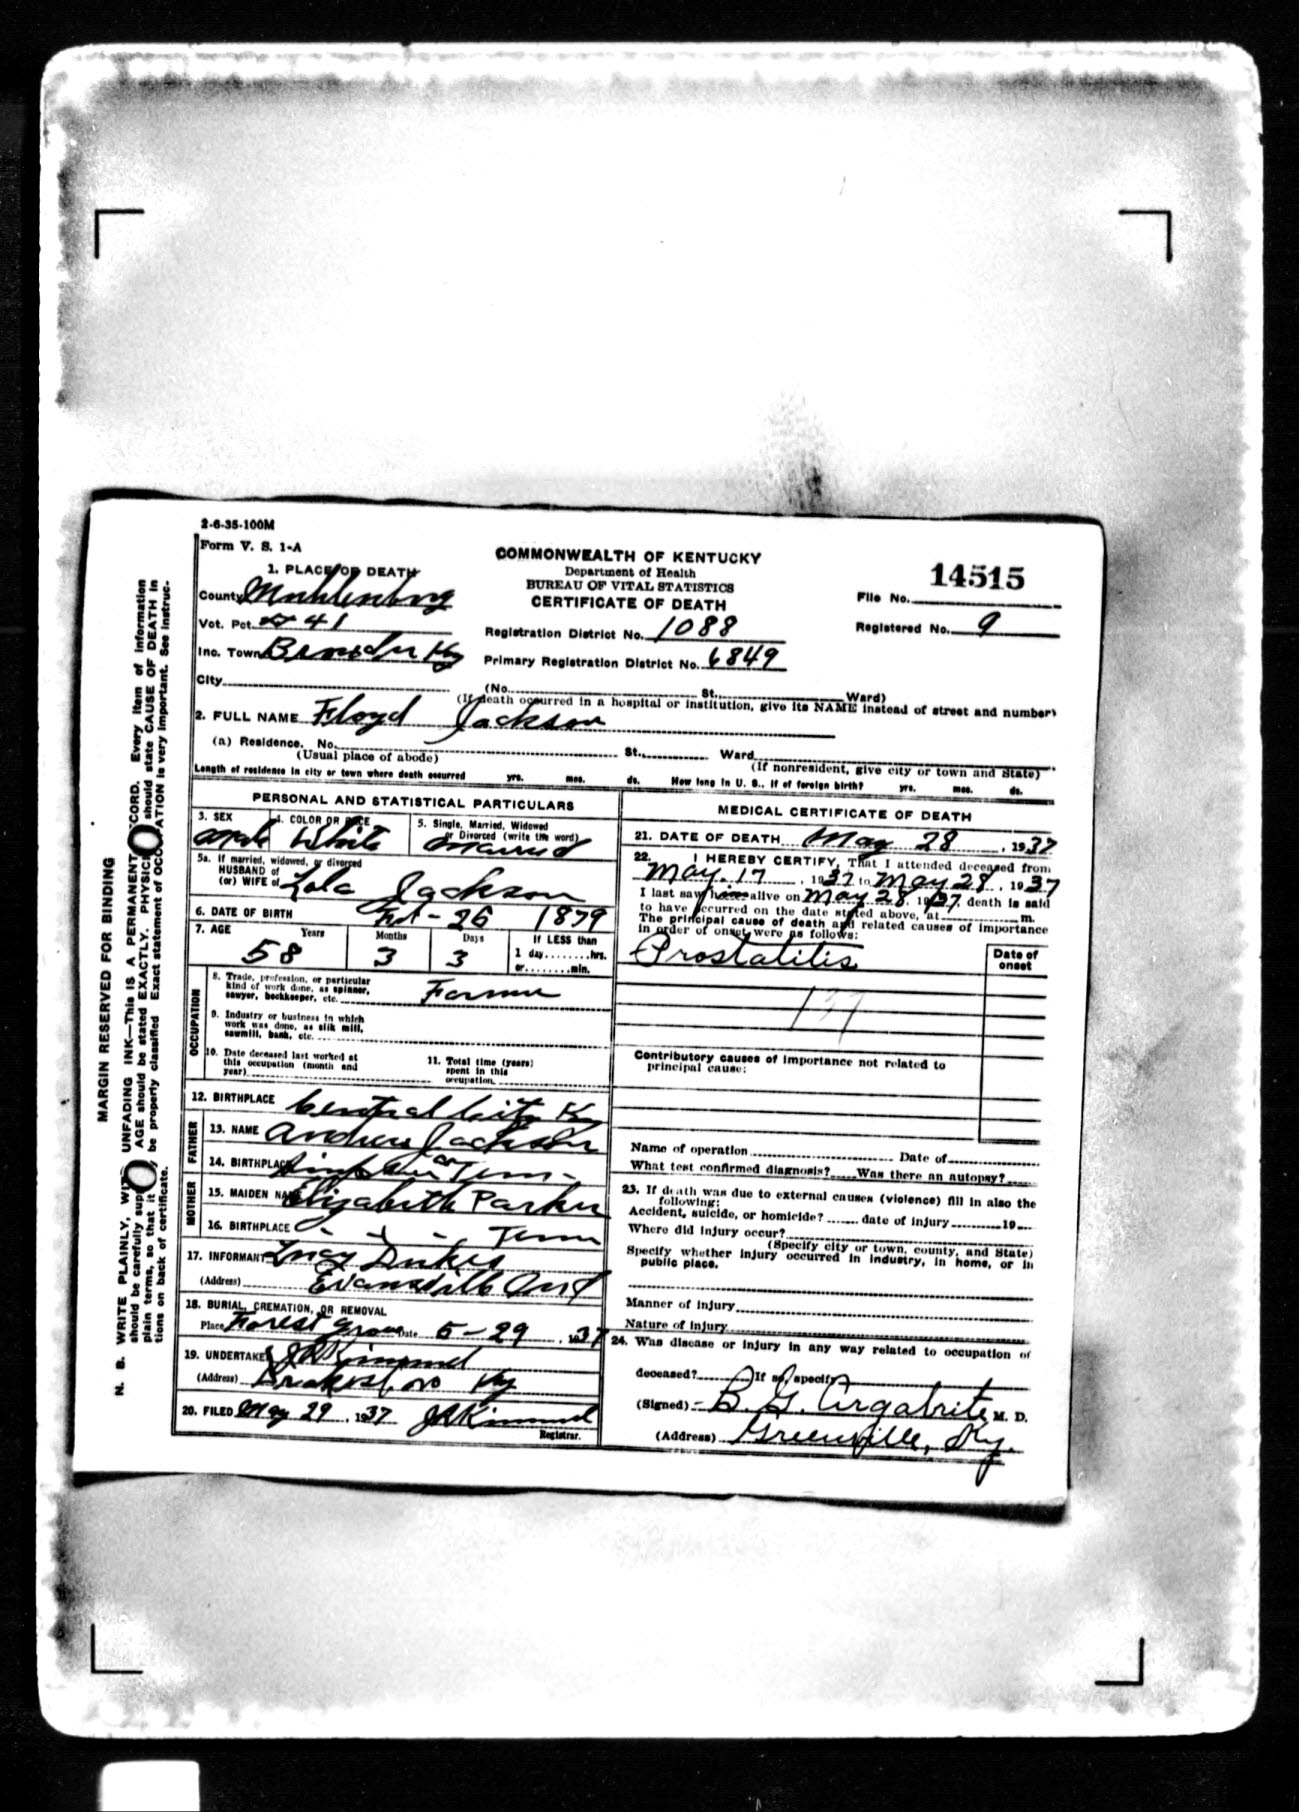 2-6-35-100M
Form V. S. 1-A
COMMONWEALTH OF KENTUCKY
Department of Health
BUREAU OF VITAL STATISTICS
CERTIFICATE OF DEATH
14515
File No.
Registered No. 9
1. PLACE OF DEATH
County Muhlenberg
Vot. Pct. 41
Inc. Town Bremen Ky
City
Registration District No. 1088
Primary Registration District No. 6849
(No. St. Ward)
(If death occurred in a hospital or institution, give its NAME instead of street and number)
2. FULL NAME Floyd Jackson
(a) Residence. No. St. Ward
(Usual place of abode)
(If nonresident, give city or town and State)
Length of residence in city or town where death occurred yrs. mos. ds. How long in U. S., if of foreign birth? yrs. mos. ds.
PERSONAL AND STATISTICAL PARTICULARS
3. SEX
Male
4. COLOR OR RACE
White
5. Single, Married, Widowed
or Divorced (write the word)
Married
5a. If married, widowed, or divorced
HUSBAND of
(or) WIFE of Lola Jackson
6. DATE OF BIRTH Feb - 26 1879
7. AGE Years Months Days If LESS than
58 3 3 1 day........hrs.
or........min.
OCCUPATION
8. Trade, profession, or particular
kind of work done, as spinner,
sawyer, bookkeeper, etc. Farmer
9. Industry or business in which
work was done, as silk mill,
sawmill, bank, etc.
10. Date deceased last worked at
this occupation (month and
year)
11. Total time (years)
spent in this
occupation
12. BIRTHPLACE Central City Ky
FATHER
13. NAME Andrew Jackson
14. BIRTHPLACE Tenn -
MOTHER
15. MAIDEN NAME Elizabeth Parker
16. BIRTHPLACE Tenn
17. INFORMANT Dukes
(Address) Evansville Ind
18. BURIAL, CREMATION, OR REMOVAL
Place Forest Grove Date 5-29, 1937
19. UNDERTAKER J R Kimmel
(Address) Drakesboro Ky
20. FILED May 29, 1937 J R Kimmel
Registrar.
MEDICAL CERTIFICATE OF DEATH
21. DATE OF DEATH May 28, 1937
22. I HEREBY CERTIFY, That I attended deceased from
May. 17, 1937 to May 28, 1937
I last saw him alive on May 28, 1937, death is said
to have occurred on the date stated above, at m.
The principal cause of death and related causes of importance
in order of onset were as follows:
Date of
onset
Prostatitis
137
Contributory causes of importance not related to
principal cause:
Name of operation Date of
What test confirmed diagnosis? Was there an autopsy?
23. If death was due to external causes (violence) fill in also the
following:
Accident, suicide, or homicide? date of injury 19
Where did injury occur?
(Specify city or town, county, and State)
Specify whether injury occurred in industry, in home, or in
public place.
Manner of injury
Nature of injury
24. Was disease or injury in any way related to occupation of
deceased? If so, specify
(Signed) B. G. Argabrite M. D.
(Address) Greenville, Ky.
MARGIN RESERVED FOR BINDING
N. B. WRITE PLAINLY, WITH UNFADING INK—This IS A PERMANENT RECORD. Every item of information
should be carefully supplied. AGE should be stated EXACTLY. PHYSICIANS should state CAUSE OF DEATH in
plain terms, so that it may be properly classified. Exact statement of OCCUPATION is very important. See instruc-
tions on back of certificate.